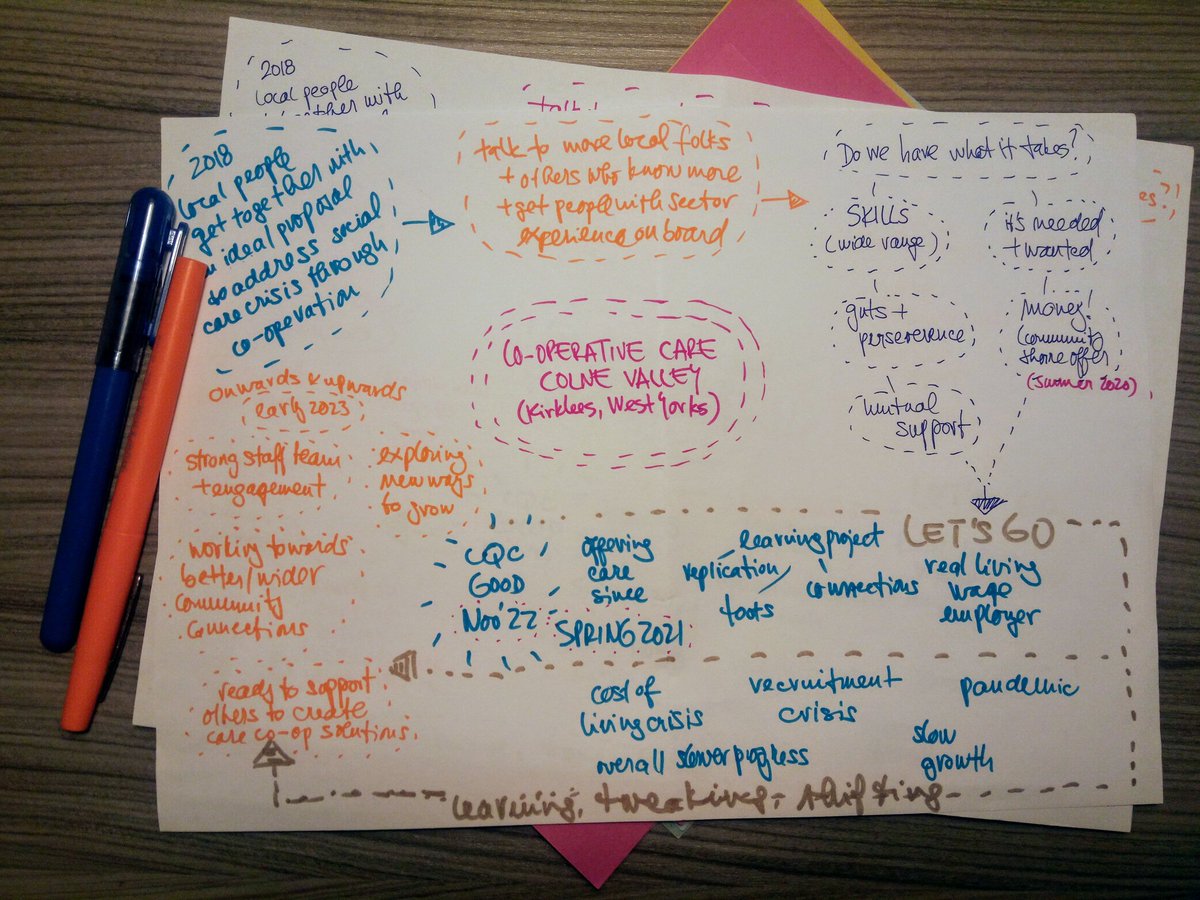 2018
local people
2018
local people
get together with
an ideal proposal
to address social
care crisis through
co-operation
talk to more local folks
+ others who know more
+ get people with sector
experience on board
Do we have what it takes?
SKILLS
(wide range)
it's needed
+ wanted
guts +
perseverence
money!
(community
share offer
(Summer 2020)
mutual
support
CO-OPERATIVE CARE
COLNE VALLEY
(Kirklees, West Yorks)
onwards & upwards
early 2023
strong staff team
+ engagement
exploring
new ways
to grow
working towards
better/wider
community
connections
ready to support
others to create
care co-op solutions.
LET'S GO
CQC
GOOD
Nov '22
offering
care
since
SPRING 2021
learning project
replication
tools
connections
real living
wage
employer
cost of
living crisis
recruitment
crisis
pandemic
overall slower progress
slow
growth
learning, tweaking, shifting